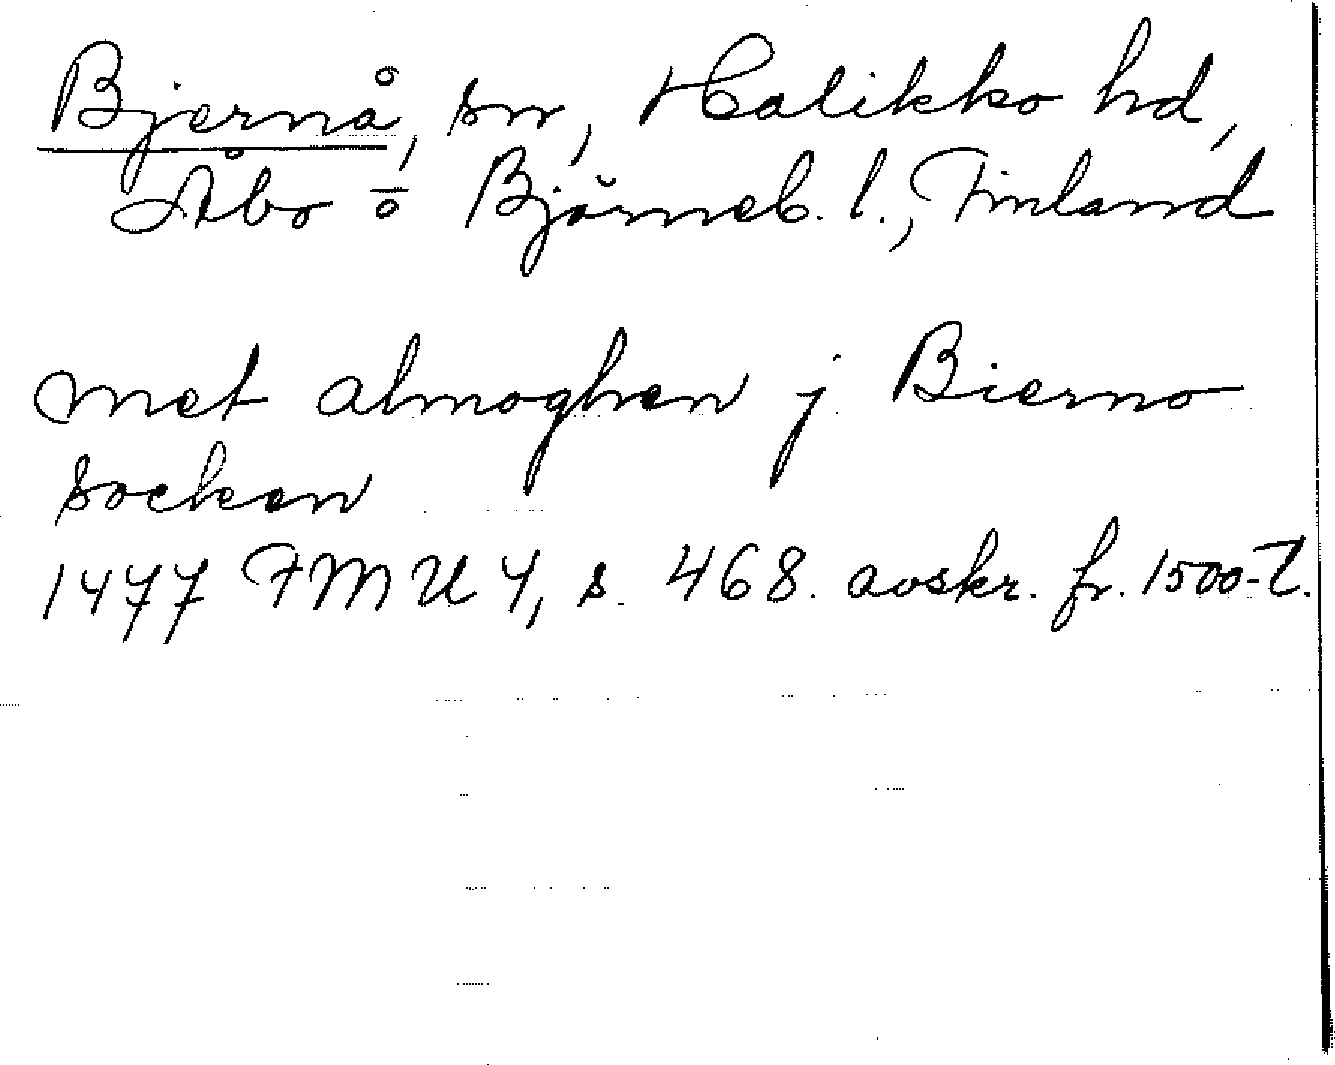 Bjernå, sn, Halikko hd,
Åbo o Björneb. l., Finland
met almoghen j Bierno
socken
1477 FMU 4, s. 468. avskr. fr. 1500-t.